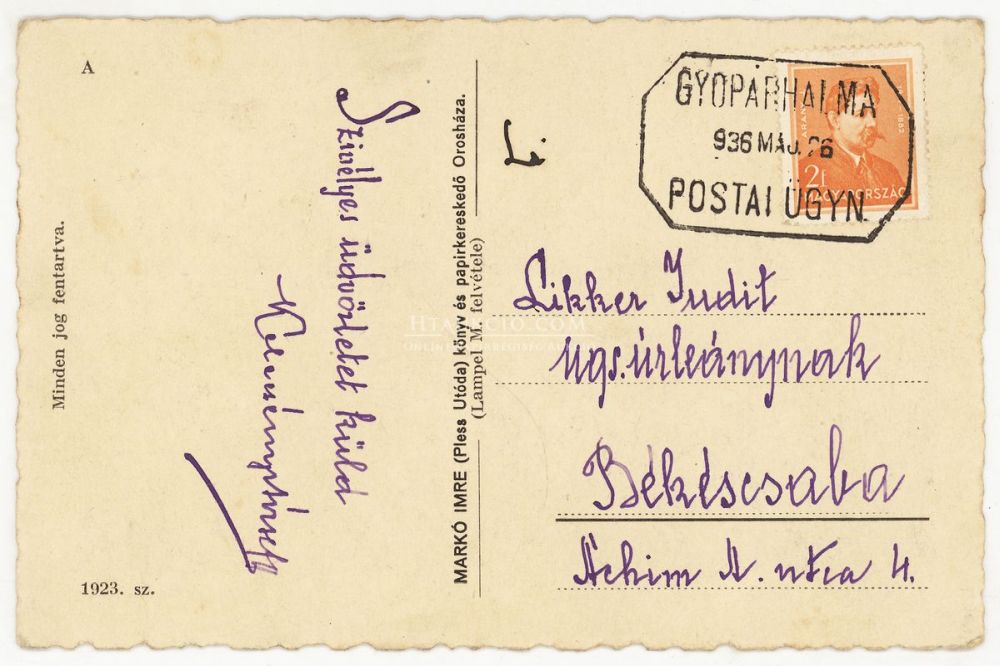 A
Minden jog fentartva.
1923. sz.
Szivélyes üdvözletet küld
MARKÓ IMRE (Pless Utóda) könyv és papirkereskedő Orosháza.
(Lampel M. felvétele)
GYOPÁRHALMA
936 MÁJ. 26
POSTAI ÜGYN.
ARANY
1882
2f
MAGYARORSZÁG
Likker Judit
úgs. úrleánynak
Békéscsaba
Áchim A. utca 4.
HTAUCIO.COM